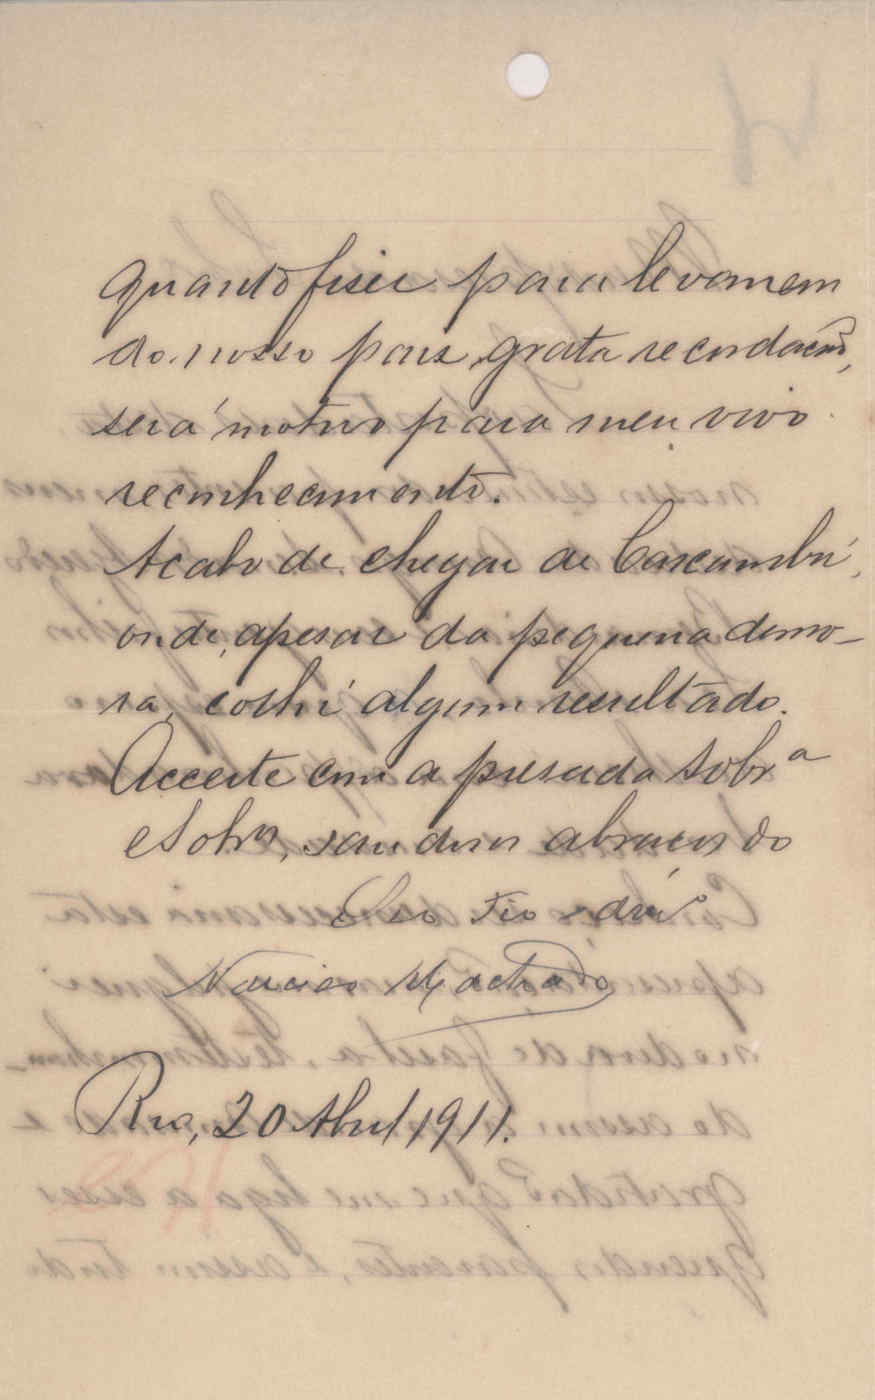 quanto fiser para levarem
do nosso pais grata recordação,
será motivo para meu vivo
reconhecimento.
Acabo de chegar de Caxambú,
onde, apesar da pequena demo-
ra, colhi algum resultado.
Acceite com a presada Sobrª
e Sobrºs, saudosos abraços do
Seo Tio
Narciso Machado
Rio, 20 Abril 1911.